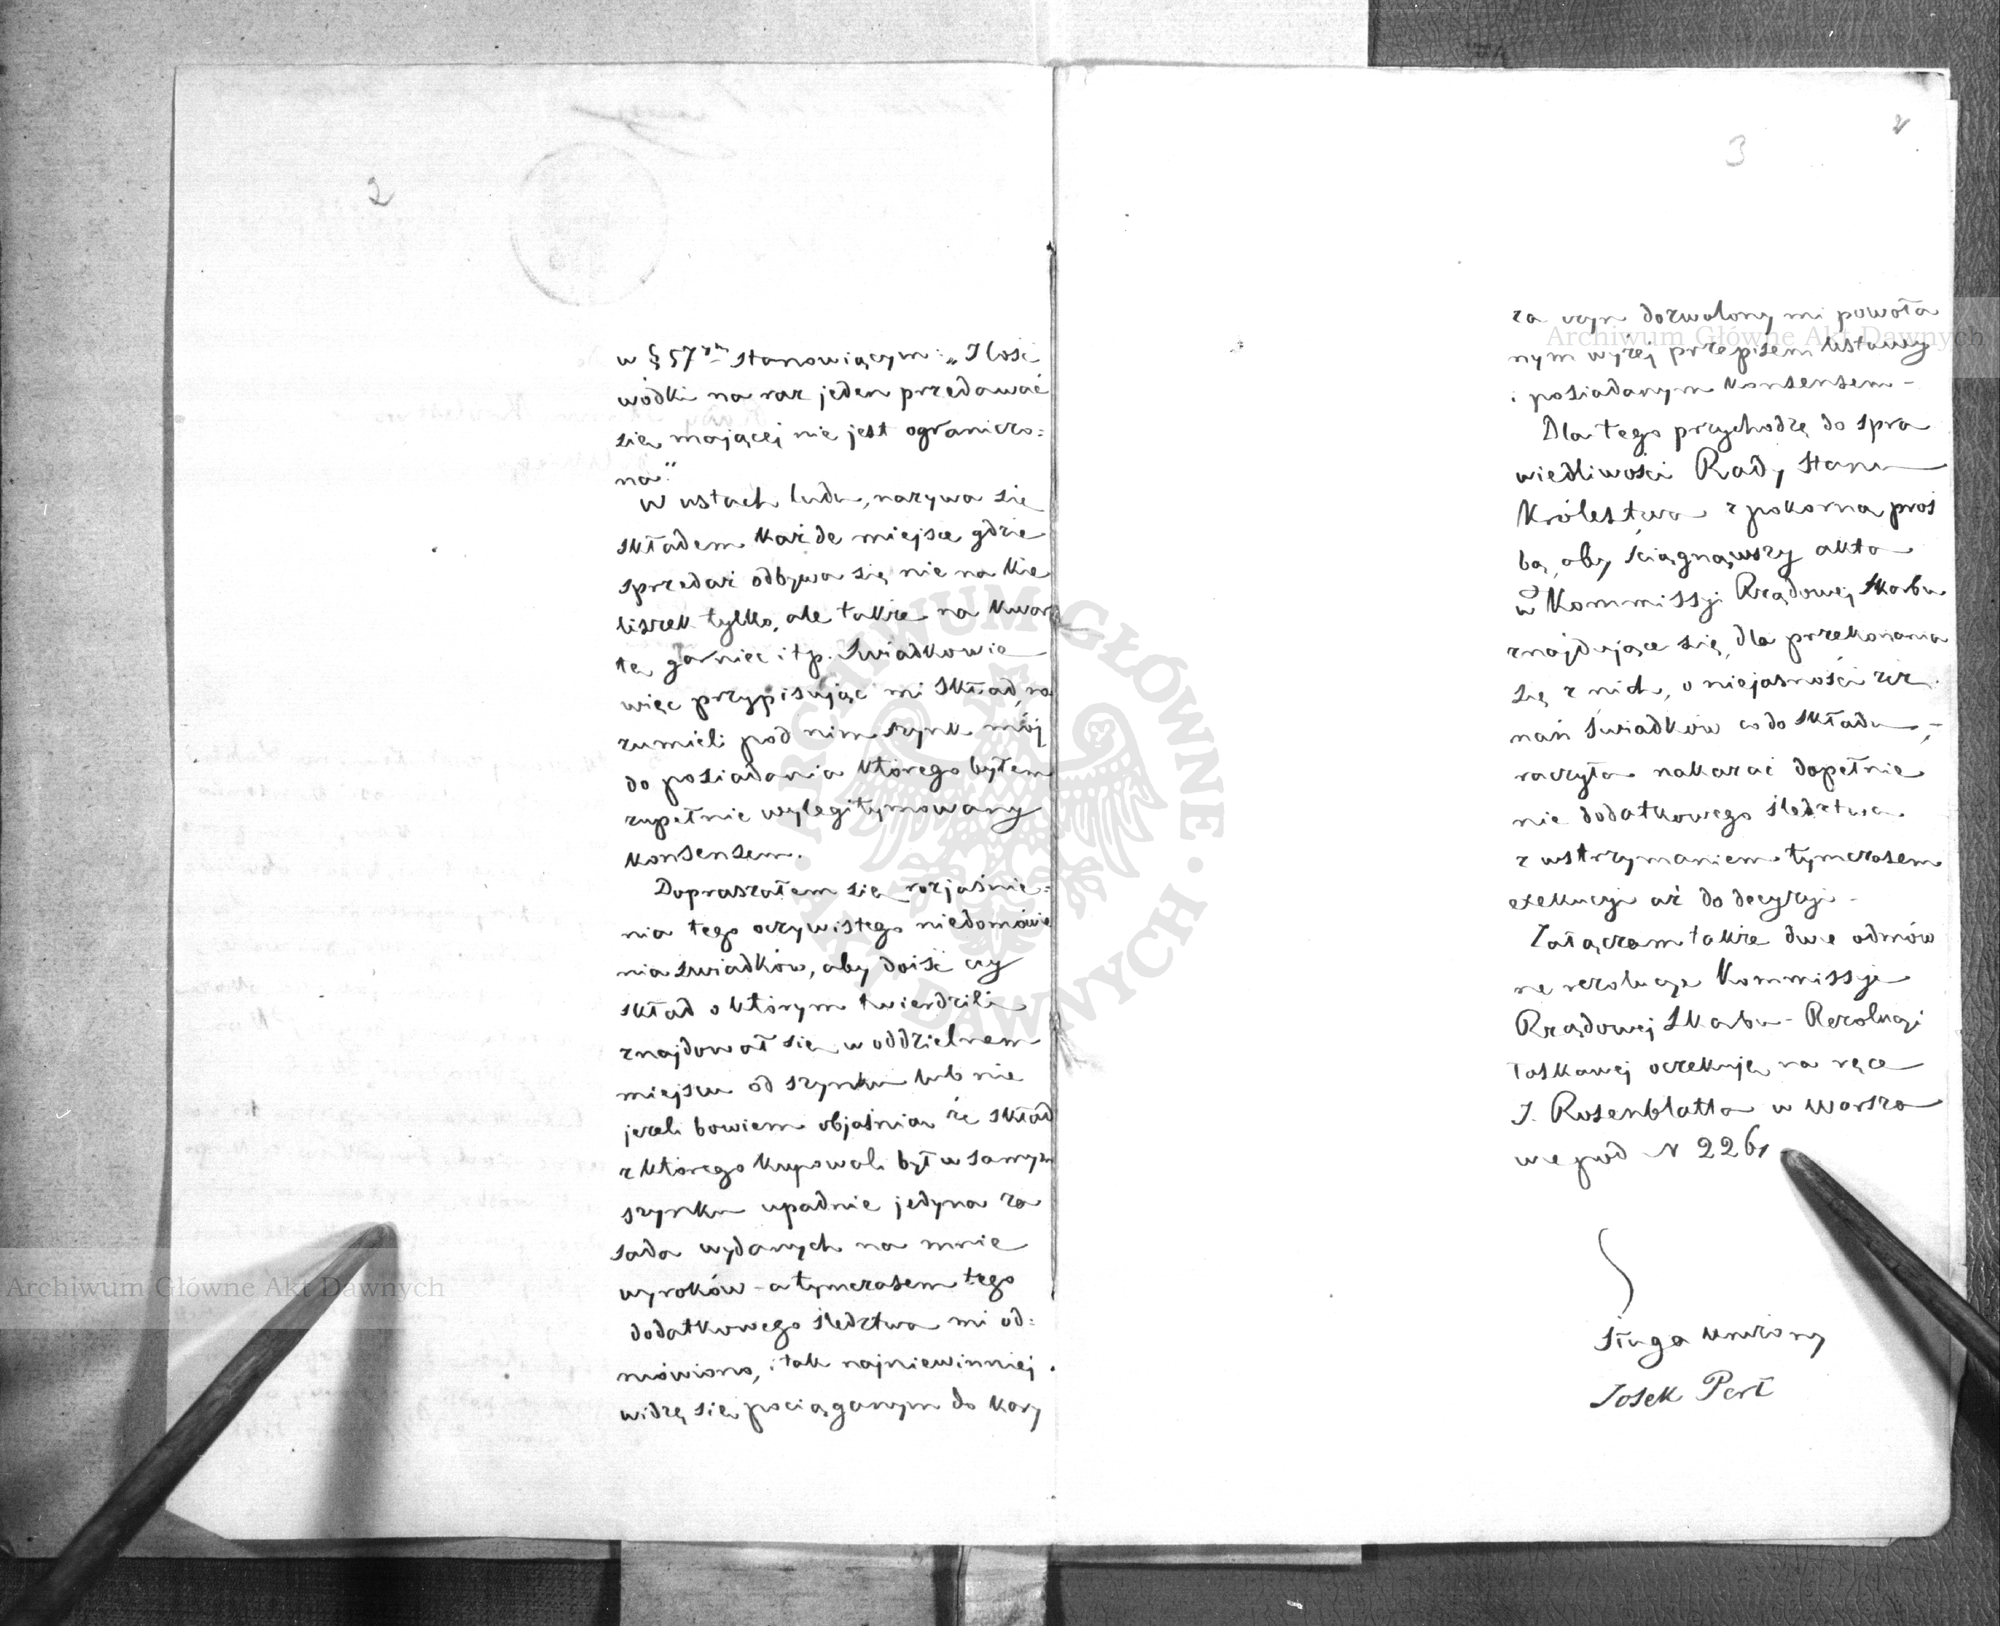 2
w § 57ym stanowiącym: „Ilość
wódki na raz jeden przedawać
się mającej nie jest ograniczo=
na."
W ustach ludu, nazywa się
składem każde miejsce gdzie
sprzedaż odbywa się nie na kie
liszek tylko, ale także na kwar
tę garniec itp. Swiadkowie
więc przypisując mi skład, ro
zumieli pod nim szynk mój
do posiadania którego byłem
zupełnie wylegitymowany
konsensem.
Dopraszałem się rozjaśnie=
nia tego oczywistego niedomówie
nia swiadków, aby dojść czy
skład o którym twierdzili
znajdował się w oddzielnem
miejscu od szynku lub nie
jeżeli bowiem objaśnią że skład
z którego kupowali był w samym
szynku upadnie jedyna za
sada wydanych na mnie
wyroków - a tymczasem tego
dodatkowego śledztwa mi od=
mówiono, i tak najniewinniej
widzę się pociąganym do kary
3
2
za czyn dozwolony mi powoła
nym wyżej przepisem Ustawy
i posiadanym konsensem -
Dla tego przychodzę do spra
wiedliwości Rady Stanu
Królestwa z pokorną proś
bą, aby ściągnąwszy akta
w Kommissyi Rządowej Skarbu
znajdujące się, dla przekonania
się z nich, o niejasności ze
znań swiadków co do składu, -
raczyła nakazać dopełnie
nie dodatkowego śledztwa
z wstrzymaniem tymczasem
exekucyi aż do decyzyi -
Załączam także dwe odmów
ne rezolucye Kommissyi
Rządowej Skarbu - Rezolucyi
łaskawej oczekuję na ręce
J. Rosenblatta w Warsza
wie pod N 2261
Sługa uniżony
Josek Perl
Archiwum Główne Akt Dawnych
Archiwum Główne Akt Dawnych
ARCHIWUM GŁÓWNE · AKT DAWNYCH ·